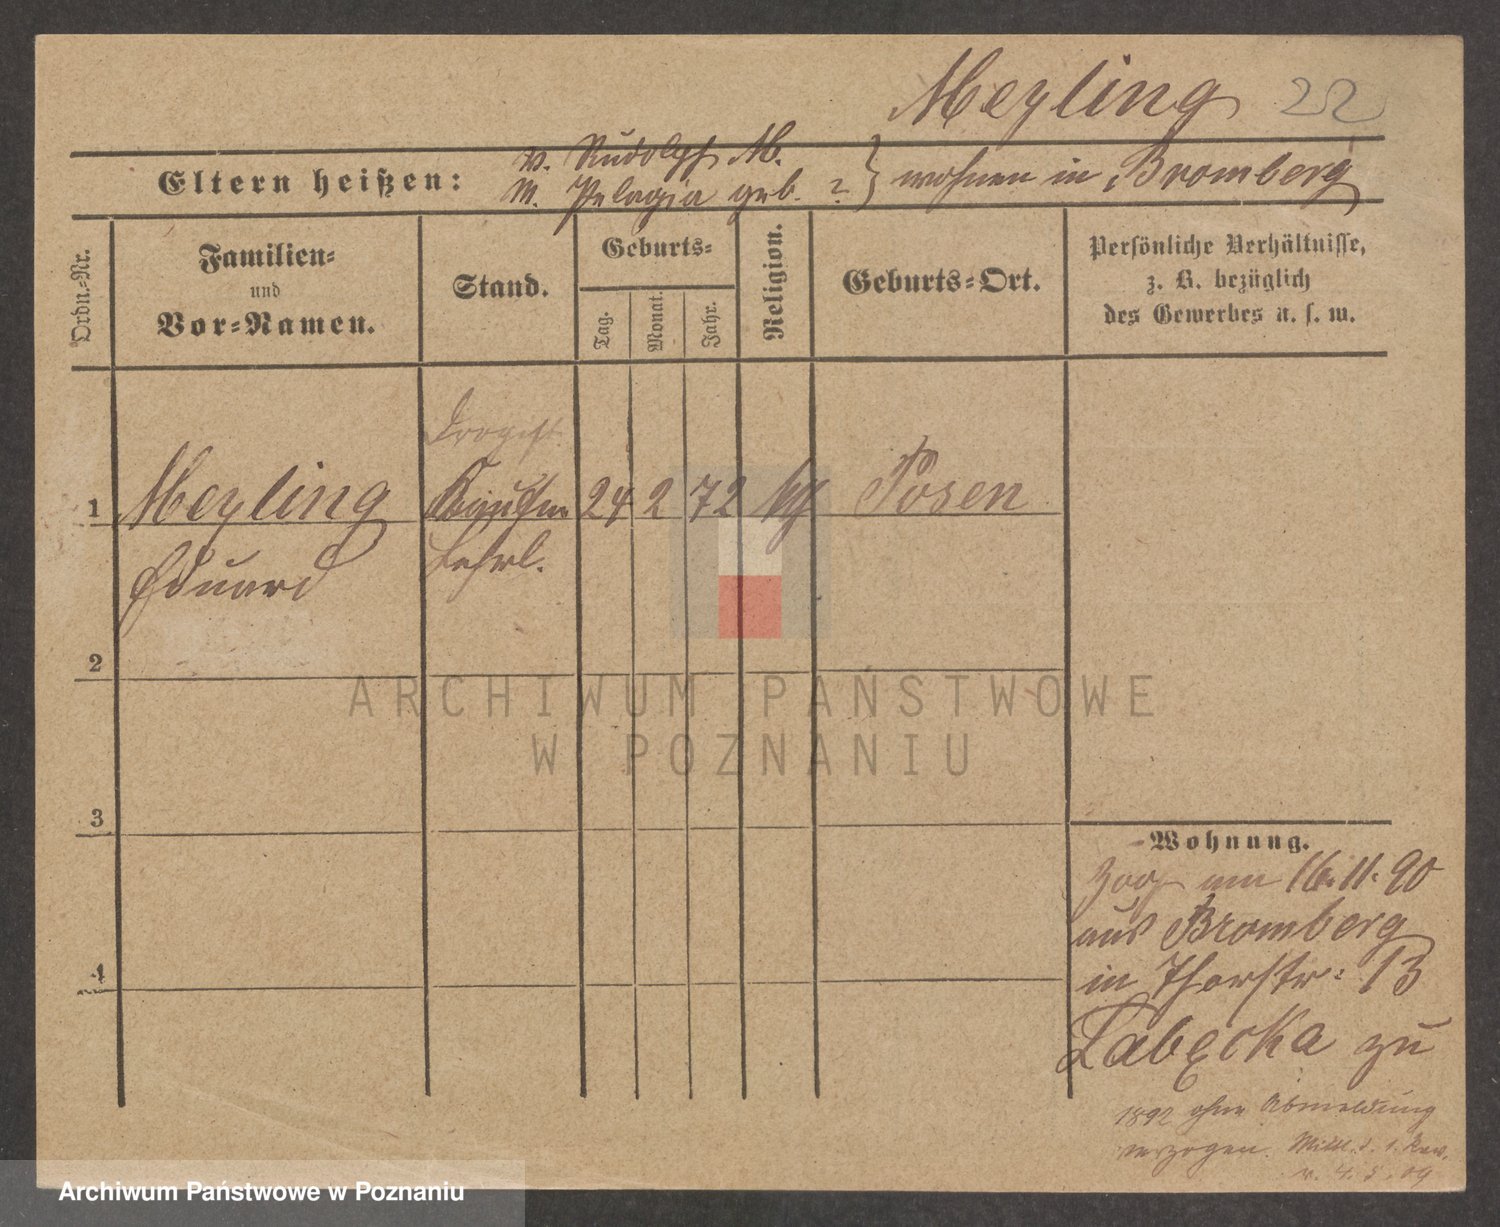 Meyling 22
V. Rudolph M.
M. Pelagia geb. ? } wohnen in Bromberg
Eltern heißen:
Ordn.-Nr.
Familien-
und
Vor-Namen.
Stand.
Geburts-
Tag.
Monat.
Jahr.
Religion.
Geburts-Ort.
Persönliche Verhältnisse,
z. B. bezüglich
des Gewerbes u. s. w.
Drogist
1 Meyling Kaufm. 24 2 72 kth Posen
Eduard Lehrl.
2
ARCHIWUM PAŃSTWOWE
W POZNANIU
3
4
Wohnung.
Zog am 16.11.90
aus Bromberg
in Thorstr. 13
Łabęcka zu
1892 ohne Abmeldung
verzogen. Mittl. d. 1. Rev.
v. 4.5.09
Archiwum Państwowe w Poznaniu